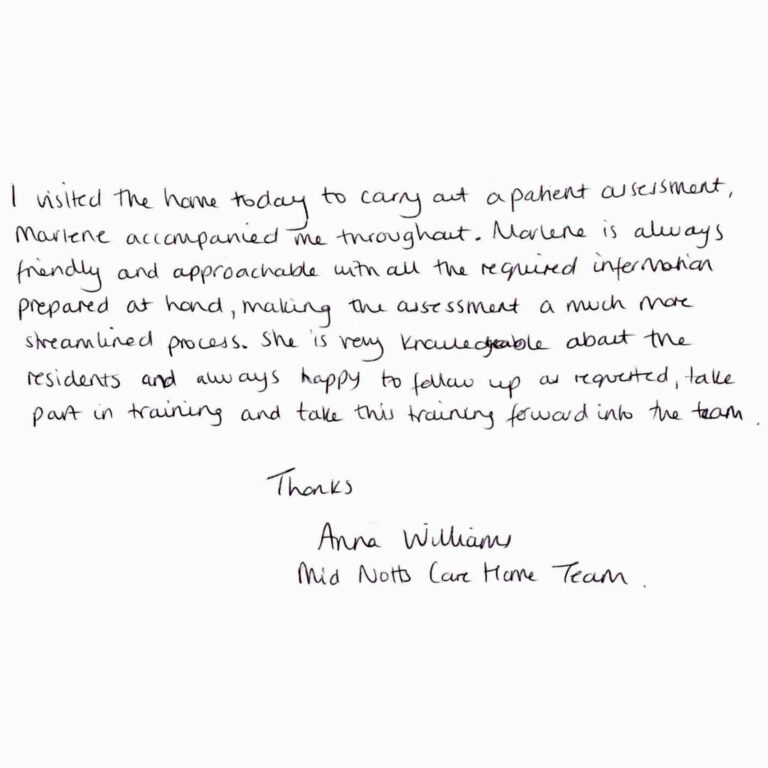 I visited the home today to carry out a patient assessment,
Marlene accompanied me throughout. Marlene is always
friendly and approachable with all the required information
prepared at hand, making the assessment a much more
streamlined process. She is very knowledgeable about the
residents and always happy to follow up as requested, take
part in training and take this training forward into the team.
Thanks
Anna Williams
Mid Notts Care Home Team.